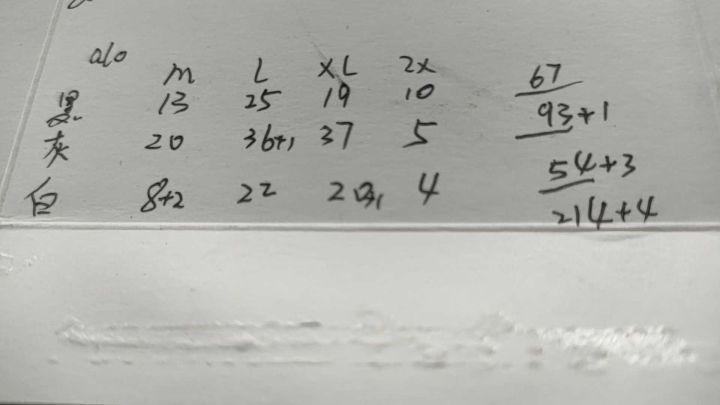 a10 M L XL 2X
黑 13 25 19 10 67
灰 20 36+1 37 5 93+1
白 8+2 22 20+1 4 54+3
214+4